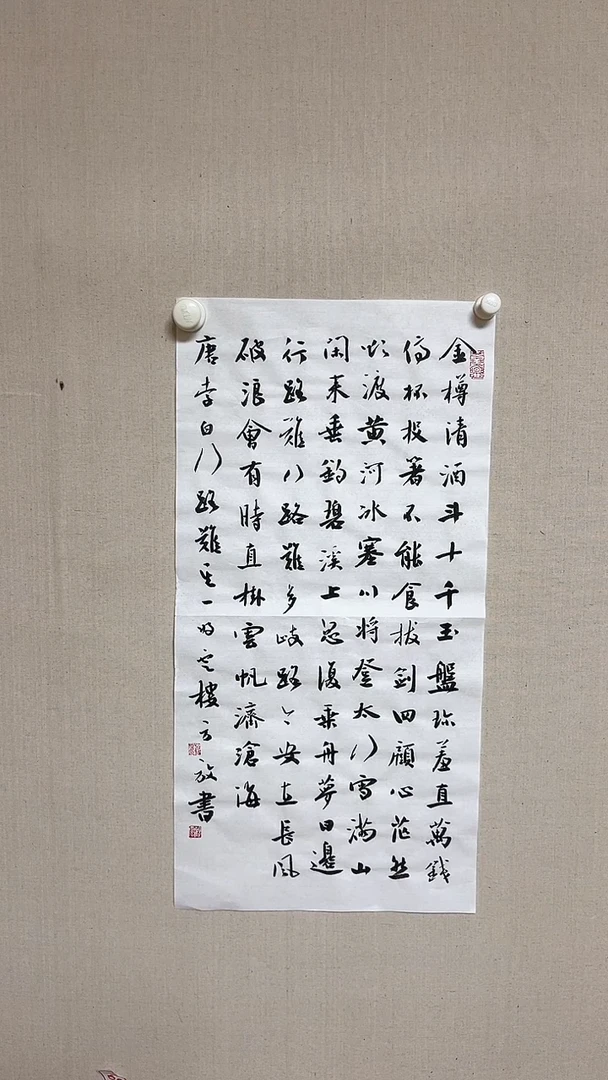 金樽清酒斗十千玉盤珎羞直萬錢
停杯投箸不能食拔剑四顧心茫然
欲渡黄河冰塞川将登太行雪满山
閑来垂釣碧溪上忽復乗舟夢日邊
行路難行路難多歧路今安在長風
破浪會有時直掛雲帆濟滄海
唐李白行路難其一樓方放書